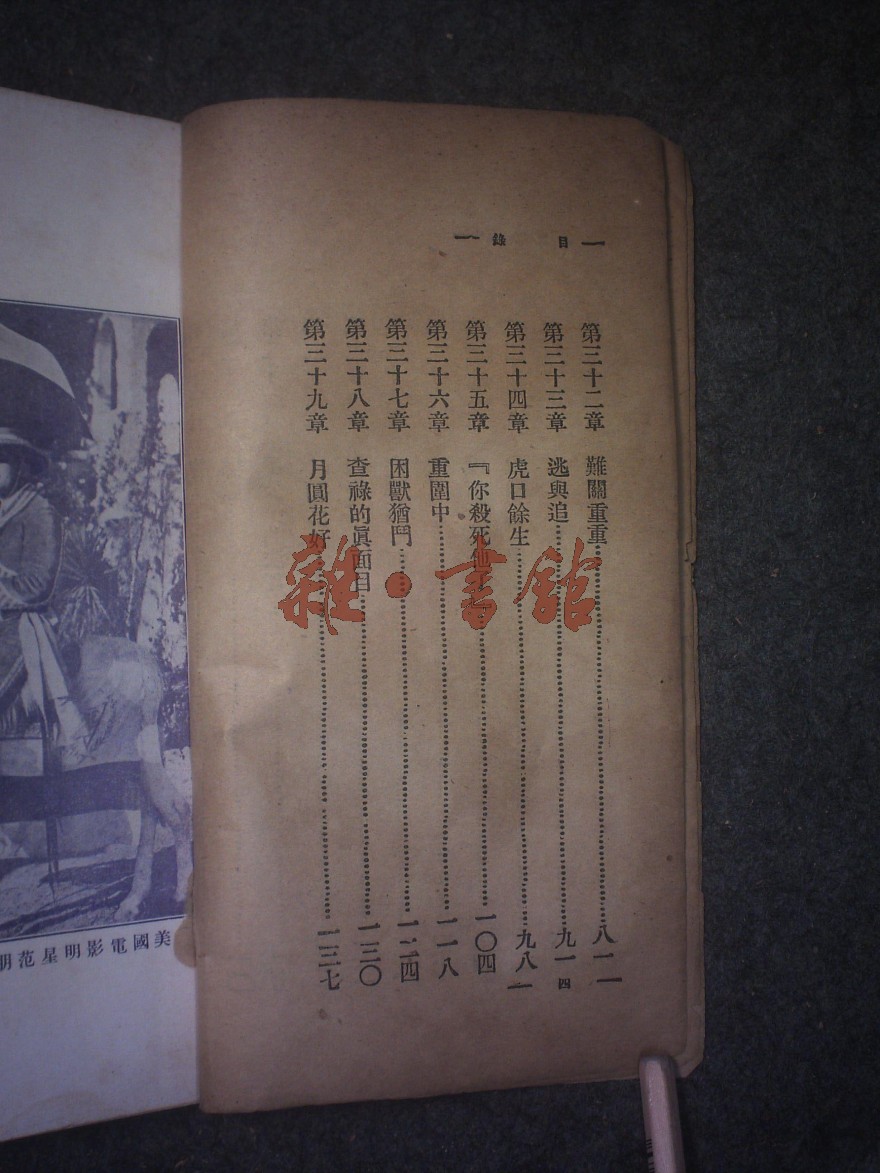 — 目錄 —
第三十二章　難關重重……八一
第三十三章　逃與追……九一
第三十四章　虎口餘生……九八
第三十五章　『你殺死他……一〇四
第三十六章　重圍中……一一八
第三十七章　困獸猶鬥……一二四
第三十八章　查祿的眞面目……一三〇
第三十九章　月圓花好……一三七
— 四 —
美國電影明星范朋
雜·書館